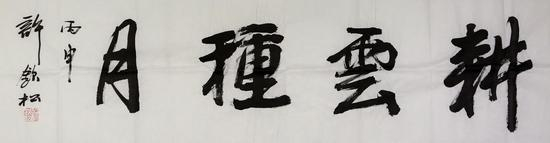 耕雲種月
丙申
許欽松